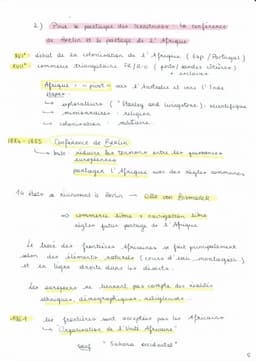 2) Pour le partage des territoires : la conférence
de Berlin et le partage de l'Afrique
XVIe début de la colonisation de l'Afrique (Esp / Portugal)
XVIIe commerce triangulaire (ports / bandes côtières)
+ esclaves
Afrique = "pivot" vers l'Australie et vers l'Inde
explorateurs ("Stanley and Livingstone") : scientifique
missionnaires : religion
colonisation : militaire
1884 - 1885 Conférence de Berlin
but : réduire les tensions entre les puissances
européennes
partager l'Afrique avec des règles communes
14 États se réunissent à Berlin → Otto von Bismarck
⇒ commerce libre + navigation libre
règles futur partage de l'Afrique
Le tracé des frontières africaines se fait principalement
selon des éléments naturels (cours d'eau, montagnes)
et en lignes droites dans les déserts.
Les européens ne tiennent pas compte des réalités
ethniques, démographiques, religieuses.
1964 les frontières sont acceptées par les africains
"Organisation de l'Unité Africaine"
sauf "Sahara occidental"